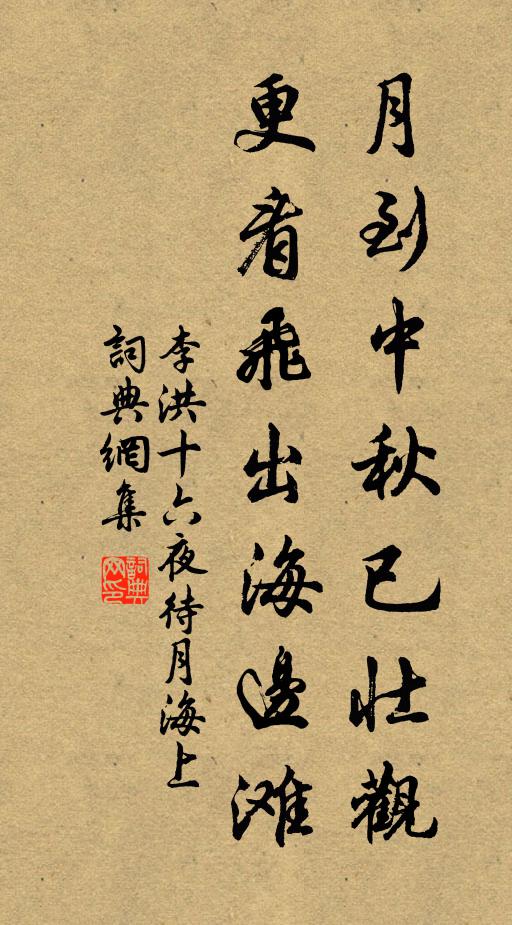 月到中秋已壯觀
更看飛出海邊滩
李洪十六夜待月海上
詞典網集
詞典网印